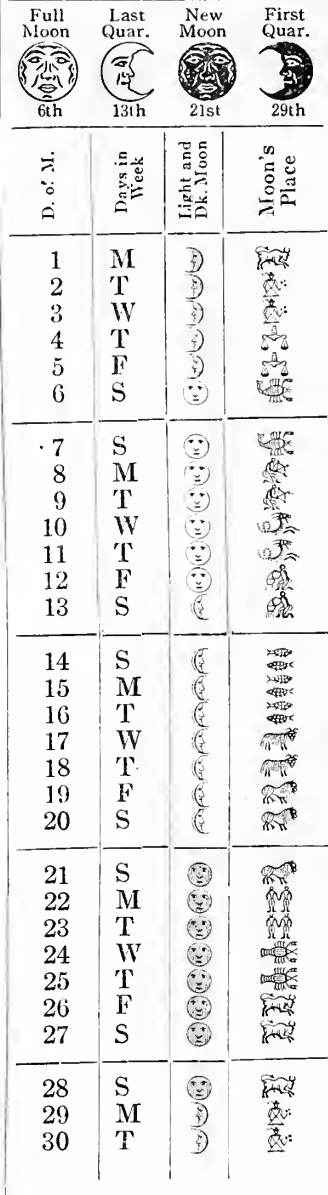 Full Last New First
Moon Quar. Moon Quar.
6th 13th 21st 29th
D. o' M. Days in Week Light and Dk. Moon Moon's Place
1 M
2 T
3 W
4 T
5 F
6 S
7 S
8 M
9 T
10 W
11 T
12 F
13 S
14 S
15 M
16 T
17 W
18 T
19 F
20 S
21 S
22 M
23 T
24 W
25 T
26 F
27 S
28 S
29 M
30 T